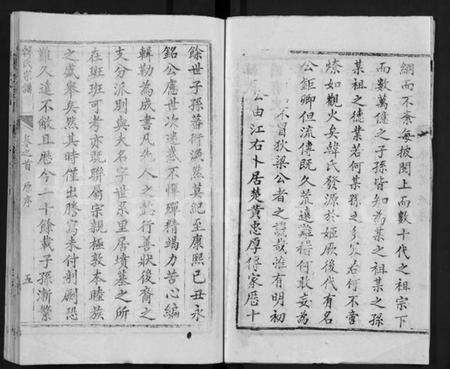 綱而不紊每披閱上而數十代之祖宗下
而數萬億之子孫皆知為某之祖某之孫
某祖之德業若何某孫之多寡若何不啻
燎如觀火矣韓氏發源於姬厥後代有名
公鉅卿但流傳既久荒遠難稽何敢妄為
不冒狄梁公者之譏哉惟有明初
公由江右卜居楚黃忠厚傳家歷十
餘世子孫蕃衍濕蒸莫紀至康熙己丑永
銘公慮世次遺忘不憚殫精竭力苦心編
輯勒為成書凡先人之懿行善狀後裔之
支分派別與夫名字世系里居墳墓之所
在班班可考亦既聯屬宗親極敦本睦族
之盛舉矣然其時僅出謄寫未付剞劂恐
難久遠不敝且歷今二十餘載子孫漸繁
韓氏宗譜
卷之首 原序
五